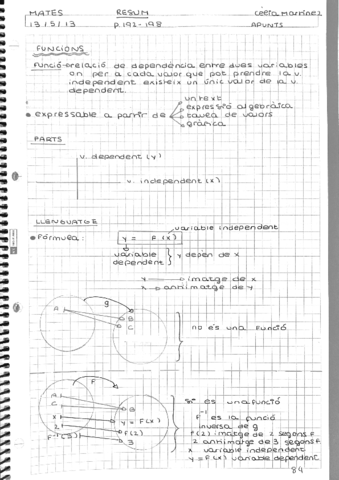 MATES RESUM
13/5/13 p.192-198 APUNTS
FUNCIONS
Funció→relació de dependència entre dues variables
on per a cada valor que pot prendre la v.
independent existeix un únic valor de la v.
dependent.
un text
expressió algebràica
• expressable a partir de taula de valors
gràfica
PARTS
v. dependent (y)
v. independent (x)
LLENGUATGE
variable independent
• Fórmula: y = F(x)
variable dependent } y depèn de x
y → imatge de x
x → antiimatge de y
g
A B C
no és una funció
F
A C x 2 F⁻¹(3)
B y = F(x) F(2) 3
Sí és una funció
F⁻¹ és la funció
inversa de g
F(2) imatge de 2 segons F
2 antiimatge de 3 segons F
x variable independent
y = F(x) variable dependent
84